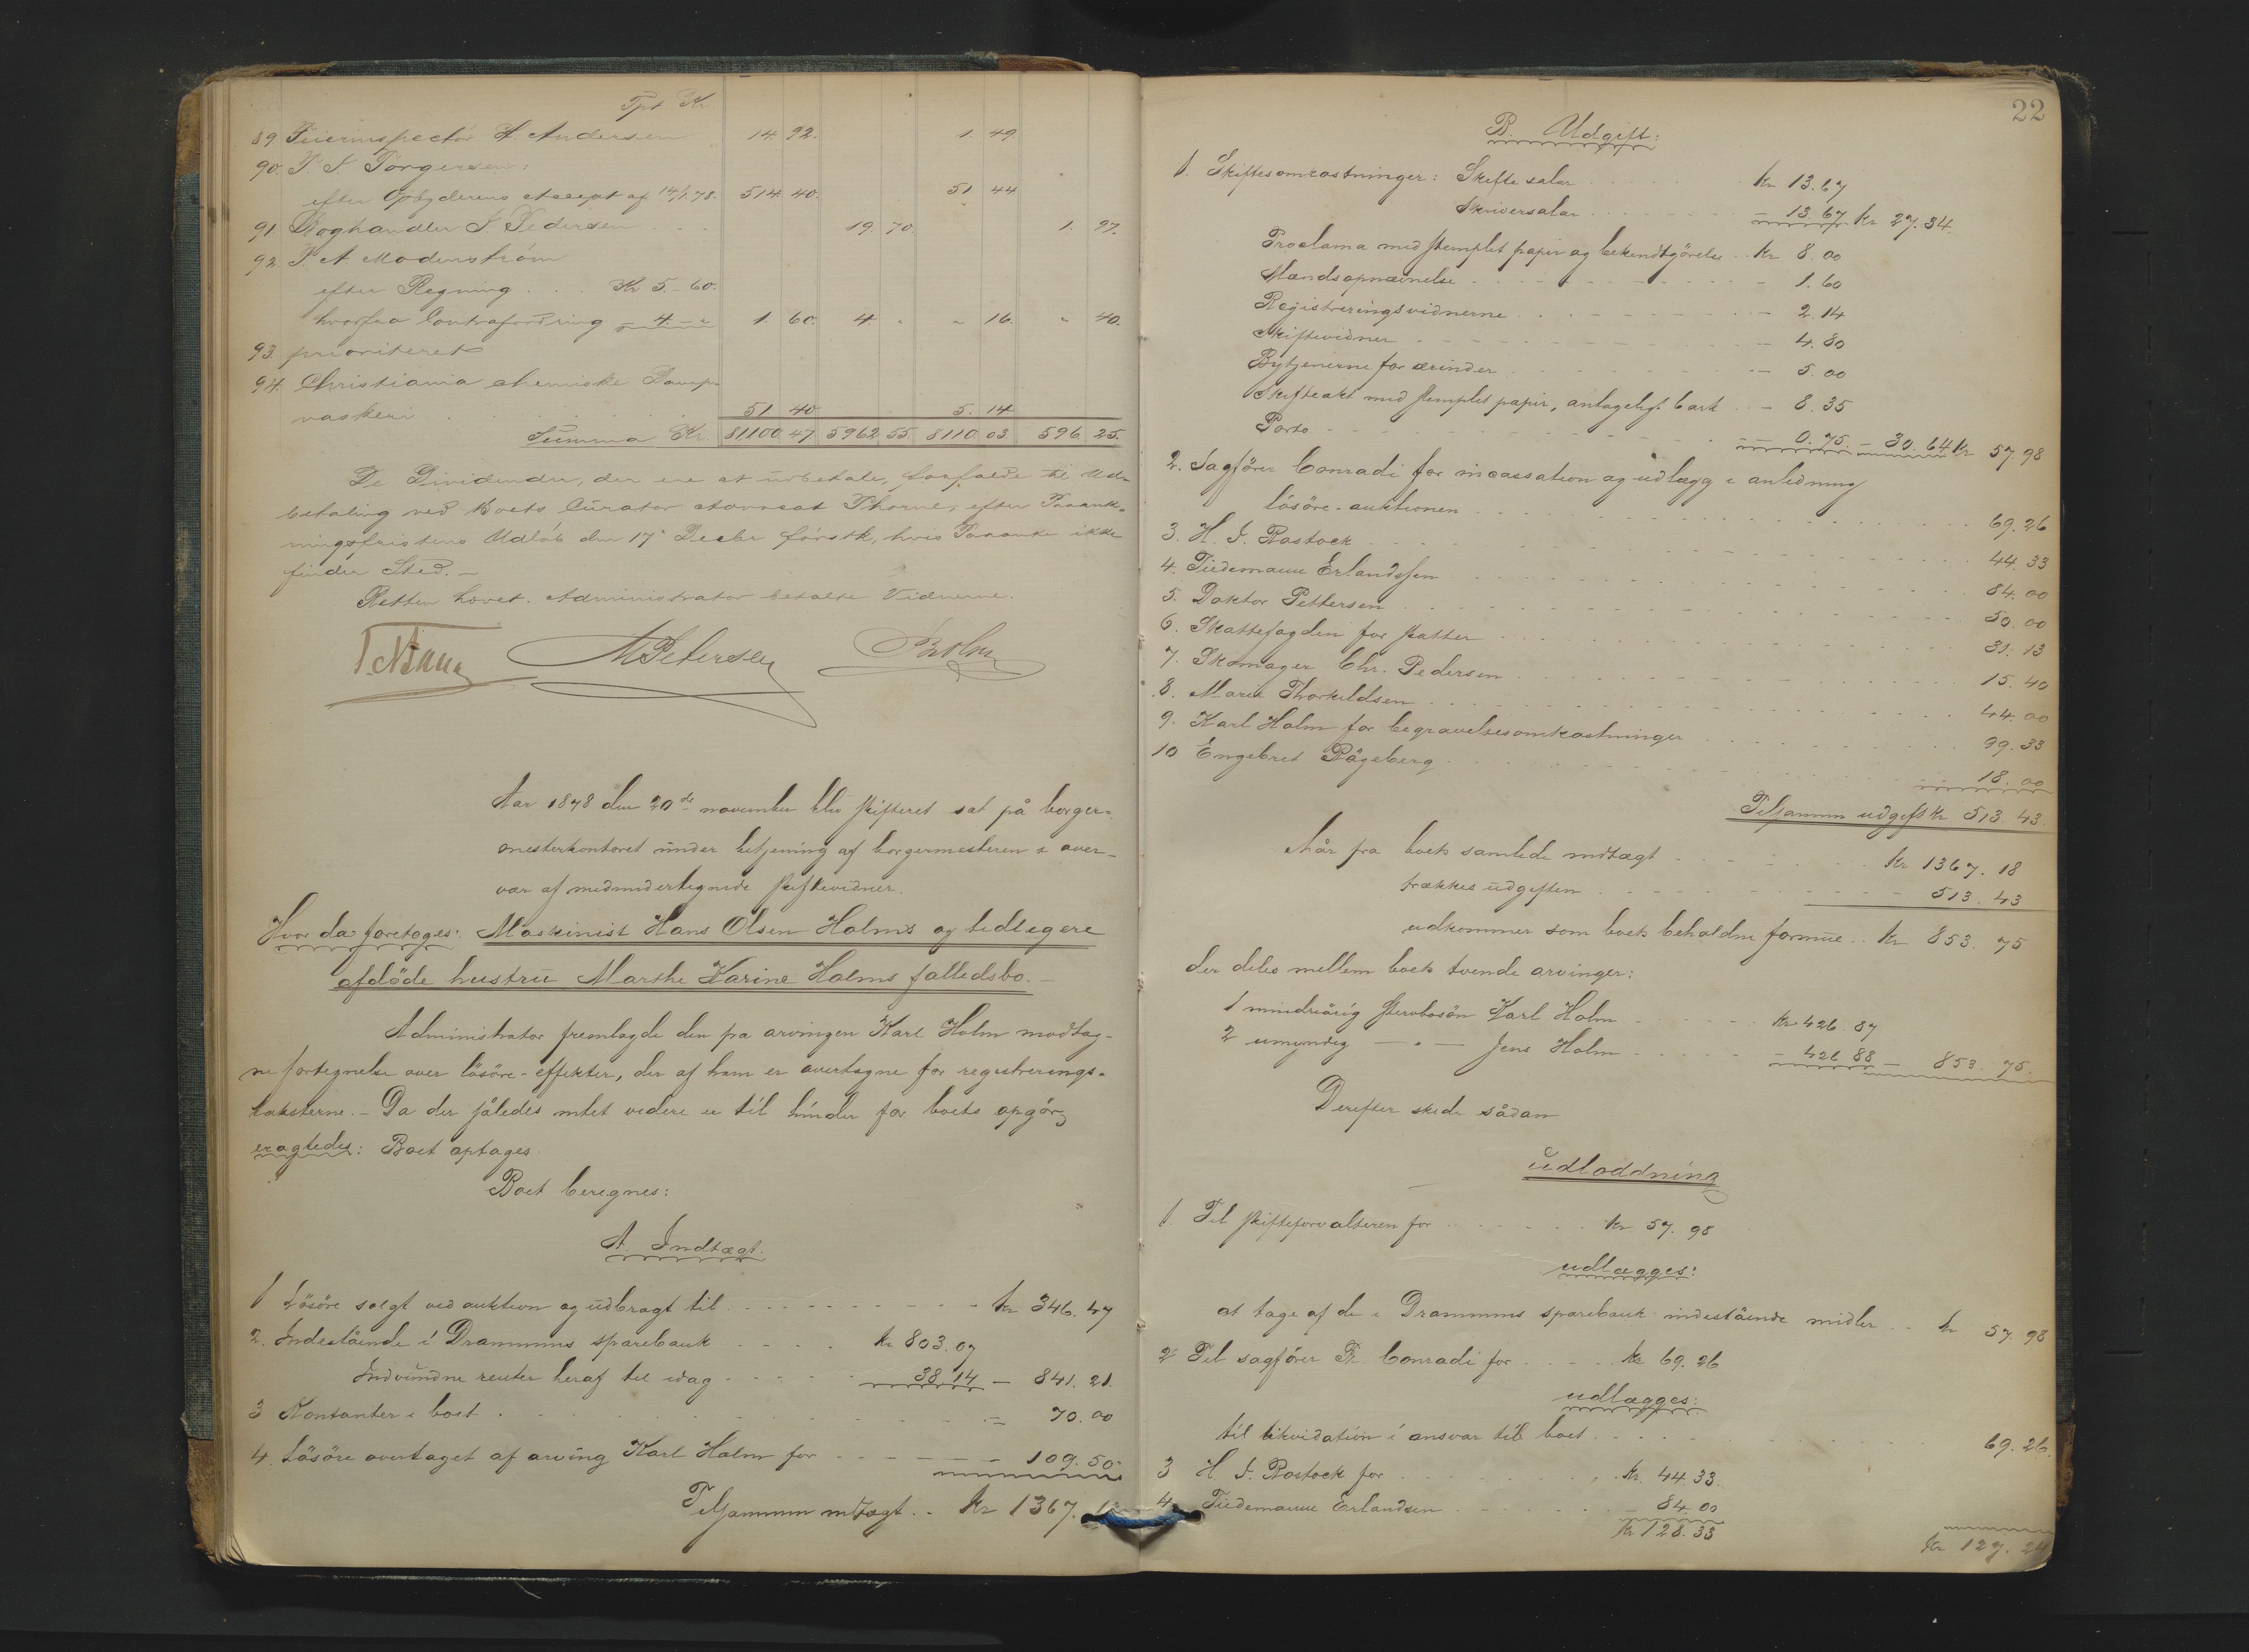 Tpt Kr.
89 Feierinspector A. Andersen 14 92. 1. 49.
90. P. T. Torgersen:
efter Opbyderens Accept af 14/1 78. 514 40. 51 44
91 Boghandler J. Pedersen 19. 70. 1. 97.
92. P. A. Modenström
efter Regning . . . Kr 5.-60.
hvorfra Contrafordring - 4.-" 1. 60. 4. " " 16. " 40.
93. prioriteret
94. Christiania chemiske Damp-
vaskeri . . . 51 40 5. 14
Summa Kr. 81100 47 5962 55. 8110. 03. 596 25.
De Dividender, der ere at udbetale, forfalde til Ud-
betaling ved Boets Curator Advocat Thorne, efter Paaank-
ningsfristens Udløb den 17de Decbr førstk, hvis Paaanke ikke
finder Sted. -
Retten hævet. Administrator betalte Vidnerne.
M Petersen Holm
Aar 1878 den 20de november blev skifteret sat på borger-
mesterkontoret under betjening af borgermesteren i over-
vær af medundertegnede skiftevidner.
Hvor da foretoges: Maskinist Hans Olsen Holms og tidligere
afdöde hustru Marthe Karine Holms fælledsbo. -
Administrator fremlagde den fra arvingen Karl Holm modtag-
ne fortegnelse over lösöre-effekter, der af ham er overtagne for registrerings-
taksterne. - Da der således intet videre er til hinder for boets opgör,
eragtedes: Boet optages.
Boet beregnes:
A. Indtægt.
1 Lösöre solgt ved auktion og udbragt til . . . kr 346. 47
2. Indestående i Drammens sparebank . . . kr 803. 07
Indvundne renter heraf til idag . . . 38. 14 - 841. 21.
3 Kontanter i boet . . . - 70. 00
4. Lösöre overtaget af arving Karl Holm for . . . - 109. 50
Tilsammen indtægt . . Kr 1367.
22
B. Udgift:
1. Skiftesomkostninger: Skiftesalær . . . Kr 13. 67
Skriversalær . . . - 13. 67 Kr 27. 34.
Proclama med stemplet papir og bekendtgörelse . . Kr 8. 00
Mandsopnævnelse . . . - 1. 60
Registreringsvidnerne . . . - 2. 14
Skiftevidner . . . - 4. 80
Bytjenerne for ærinder . . . - 5. 00
Skifteakt med stemplet papir, antageligt bart . . - 8. 35
Porto . . . - 0. 75. - 30. 64 Kr 57. 98
2. Sagförer Conradi for incassation og udlægg i anledning
lösöre-auktionen . . . 69. 26
3. H. J. Rostock . . . 44. 33
4. Tiedemann Erlandssen . . . 84. 00
5. Doktor Pettersen . . . 50. 00
6. Skattefogden for skatter . . . 31. 13
7. Skomager Chr. Pedersen . . . 15. 40
8. Marie Thorkildsen . . . 44. 00
9. Karl Holm for begravelsesomkostninger . . . 99. 33
10 Engebret Rågeberg . . . 18. 00
Tilsammen udgift Kr 513. 43.
Når fra boets samlede indtægt . . . Kr 1367. 18
trækkes udgiften . . . 513. 43
udkommer som boets beholdne formue . . Kr 853. 75
der deles mellem boets tvende arvinger:
1 mindreårig stervbosön Karl Holm . . . Kr 426. 87
2 umyndig - " - Jens Holm . . . - 426 88 - 853. 75.
Derefter skede sådan
udloddning
1. Til skifteforvalteren for . . . Kr 57. 98
udlægges:
at tage af de i Drammens sparebank indestående midler . . Kr 57. 98
2 Til sagförer Th. Conradi for . . . Kr 69. 26
udlægges:
til likvidation i ansvar til boet . . . 69. 26.
3 H. J. Rostock for . . . Kr. 44. 33.
4. Tiedemann Erlandsen . . . - 84. 00
Kr 128. 33
Kr 127. 24